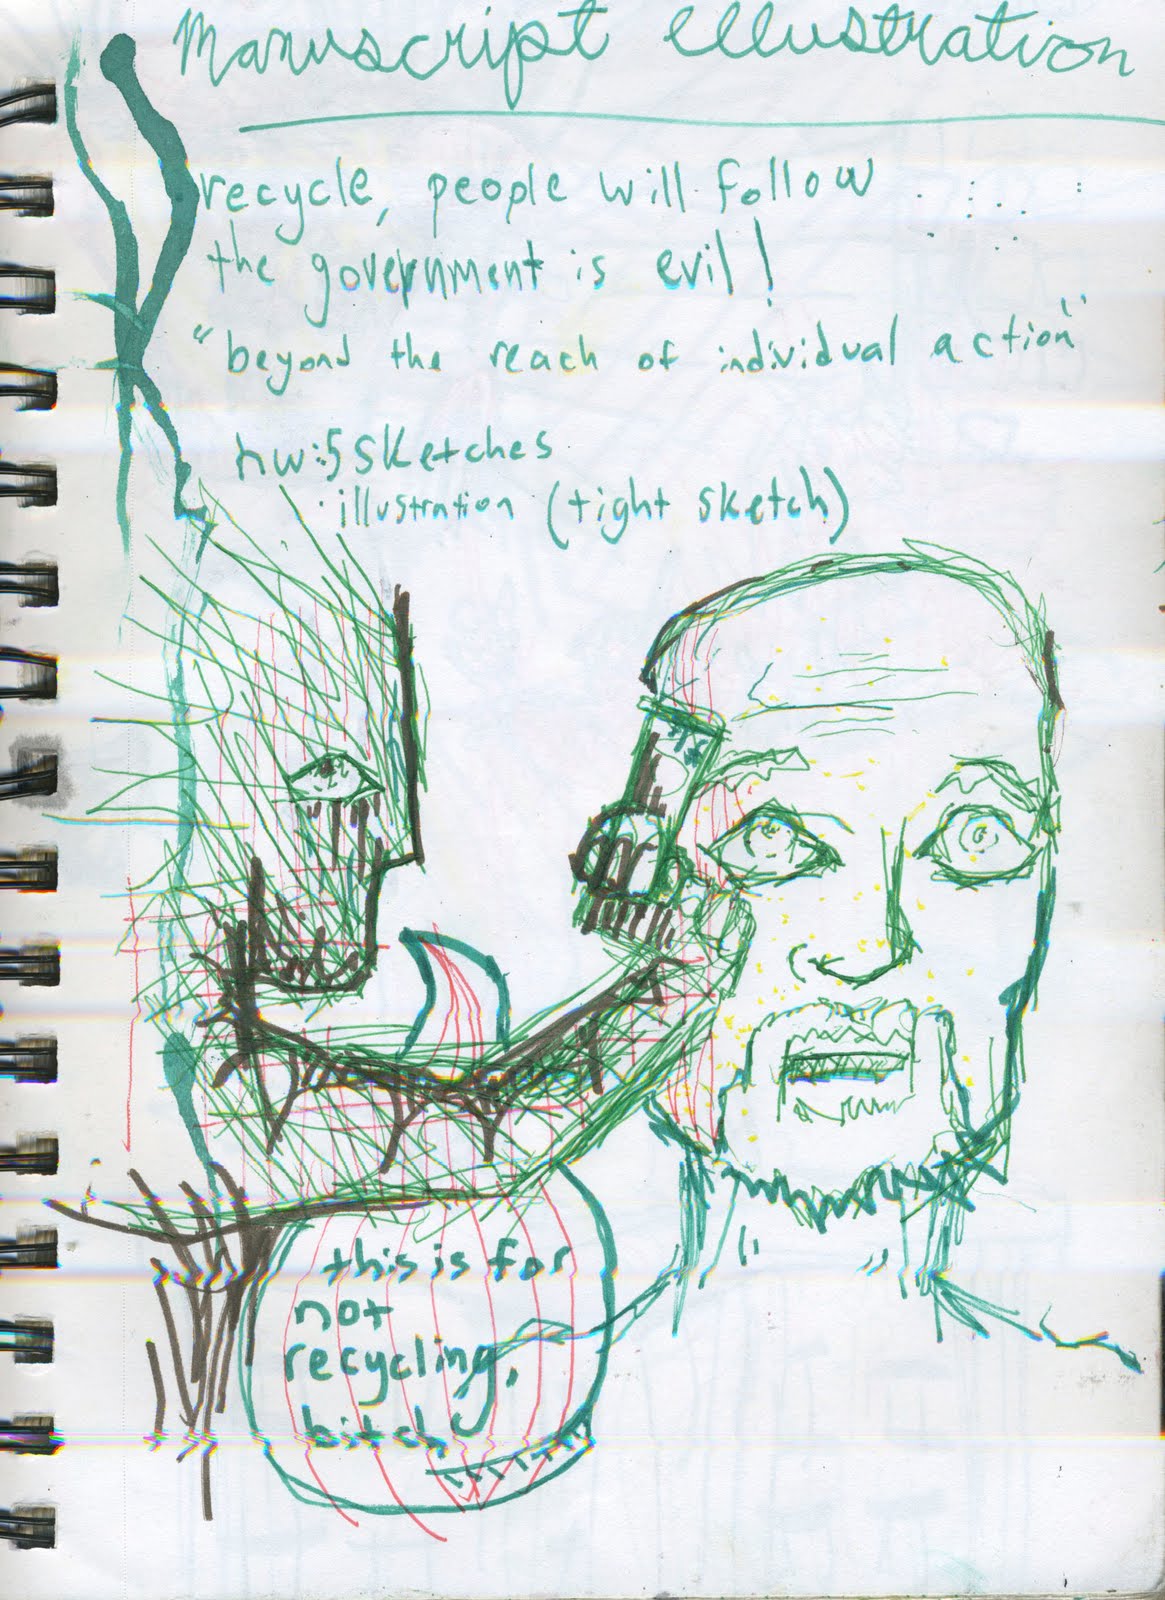 Manuscript illustration
recycle, people will follow
the government is evil!
"beyond the reach of individual action"
hw: 5 sketches
· illustration (tight sketch)
this is for
not
recycling,
bitch